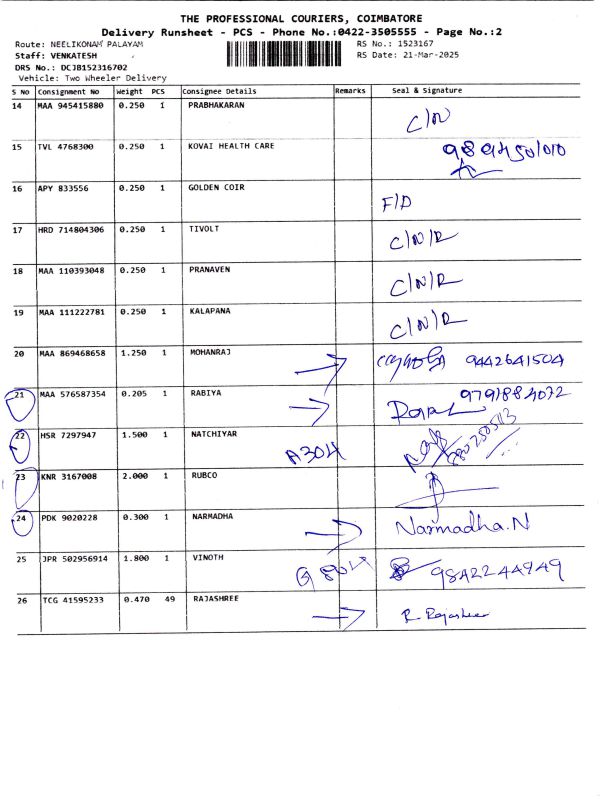 THE PROFESSIONAL COURIERS, COIMBATORE
Delivery Runsheet - PCS - Phone No.:0422-3505555 - Page No.:2
Route: NEELIKONAM PALAYAM RS No.: 1523167
Staff: VENKATESH RS Date: 21-Mar-2025
DRS No.: DCJB152316702
Vehicle: Two Wheeler Delivery
S No Consignment No Weight PCS Consignee Details Remarks Seal & Signature
14 MAA 945415880 0.250 1 PRABHAKARAN C/N
15 TVL 4768300 0.250 1 KOVAI HEALTH CARE
16 APY 833556 0.250 1 GOLDEN COIR F/D
17 HRD 714804306 0.250 1 TIVOLT C/N/R
18 MAA 110393048 0.250 1 PRANAVEN C/N/R
19 MAA 111222781 0.250 1 KALAPANA C/N/R
20 MAA 869468658 1.250 1 MOHANRAJ 9442641504
21 MAA 576587354 0.205 1 RABIYA
22 HSR 7297947 1.500 1 NATCHIYAR A304
23 KNR 3167008 2.000 1 RUBCO
24 PDK 9020228 0.300 1 NARMADHA Narmadha.N
25 JPR 502956914 1.800 1 VINOTH 9842244949
26 TCG 41595233 0.470 49 RAJASHREE R. Rajashree